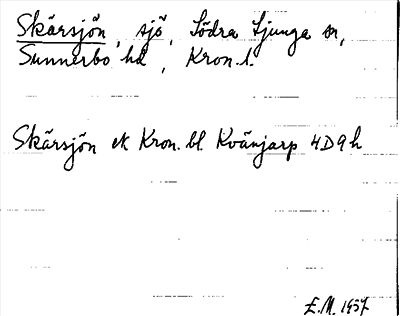 Skärsjön, sjö, Södra Ljunga sn,
Sunnerbo hd, Kron. l.
Skärsjön ek Kron. bl. Kvänjarp 4D9h
E.M. 1957